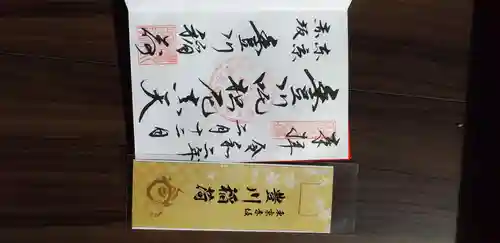 奉拝
豊川吒枳尼真天
令和二年
二月十二日
東京
赤坂
豊川
稲荷
東京赤坂
豊川稲荷